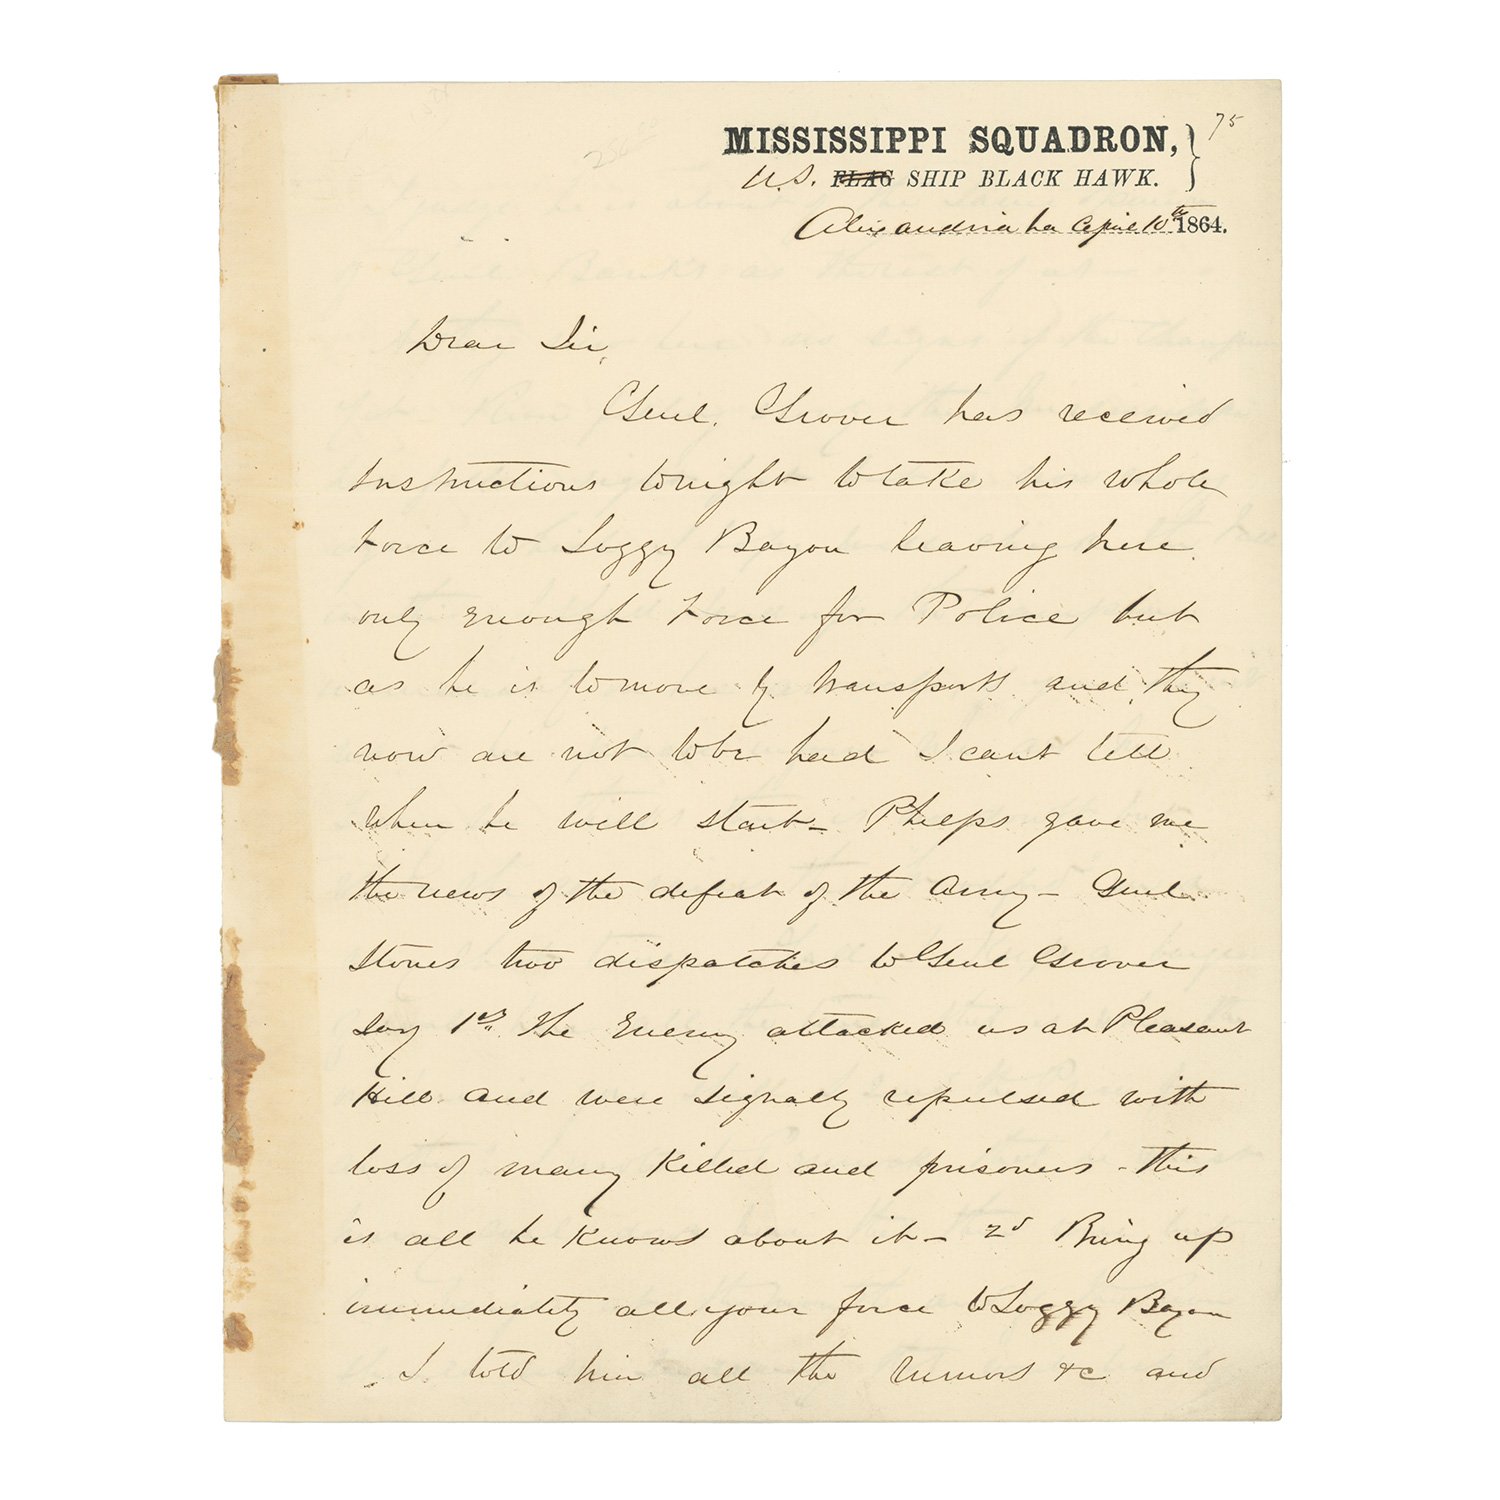 MISSISSIPPI SQUADRON, 75
U.S. FLAG SHIP BLACK HAWK.
Alexandria La April 10th 1864.
Dear Sir,
Genl. Grover has received
instructions tonight to take his whole
force to Loggy Bayou leaving here
only enough force for Police but
as he is to move by transports and they
now are not to be had I cant tell
when he will start - Phelps gave me
the news of the defeat of the Army - Genl
Stones two dispatches to Genl Grover
say 1st. The Enemy attacked us at Pleasant
Hill and were signally repulsed with
loss of many killed and prisoners - this
is all he knows about it - 2d Bring up
immediately all your force to Loggy Bayou
I told him all the rumors &c and